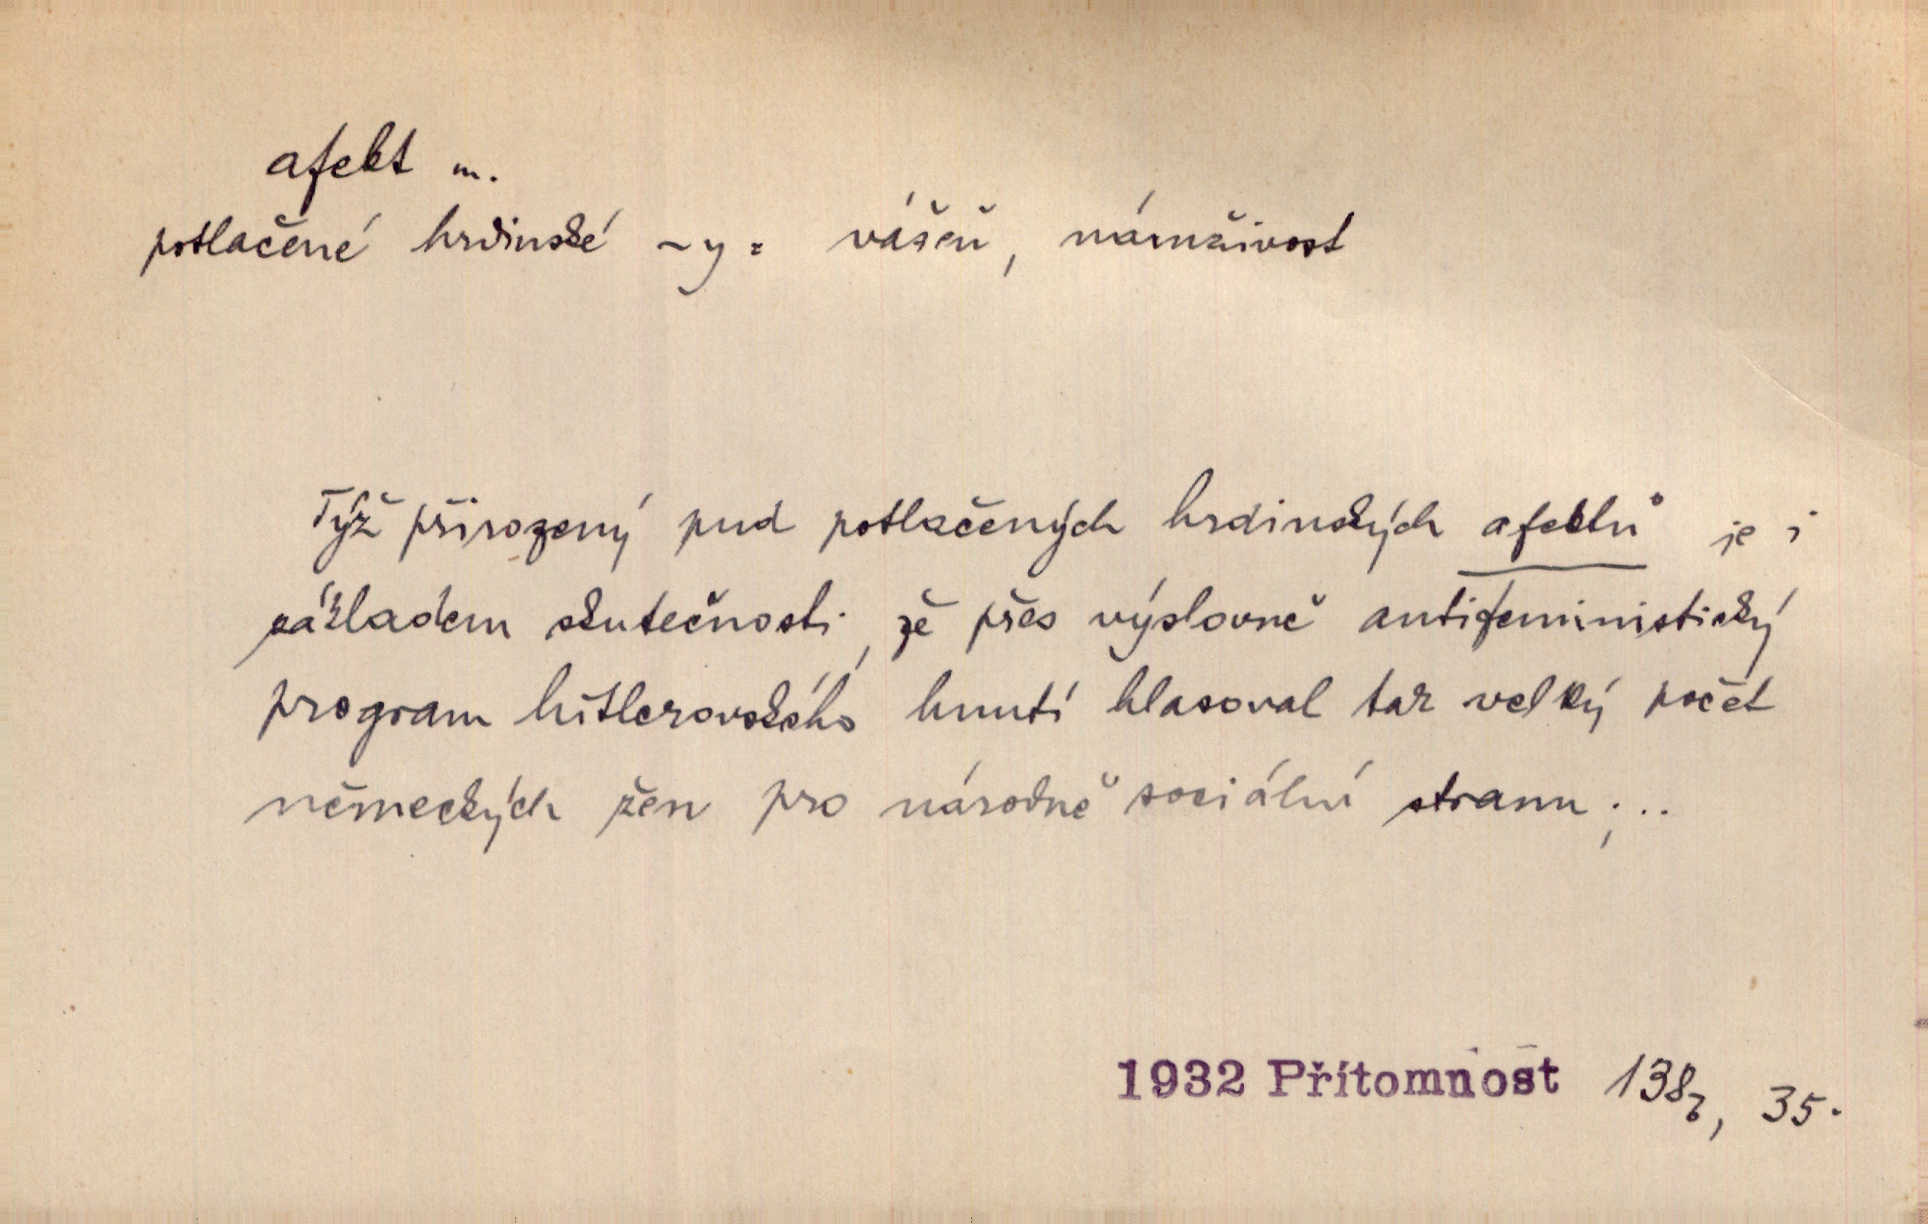 afekt m.
potlačené hrdinské ~y = vášeň, náruživost
Týž přirozený pud potlačených hrdinských afektů je i
základem skutečnosti, že přes výslovně antifeministický
program hitlerovského hnutí hlasoval tak velký počet
německých žen pro národně sociální stranu; ..
1932 Přítomnost 138, 35.